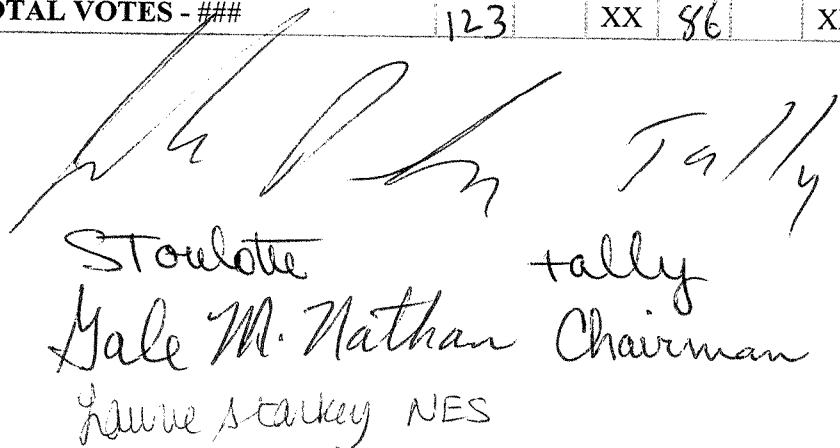 OTAL VOTES - ### 123 XX 86 X
Tally
tally
Gale M. Nathan Chairman
Laurie Starkey NES